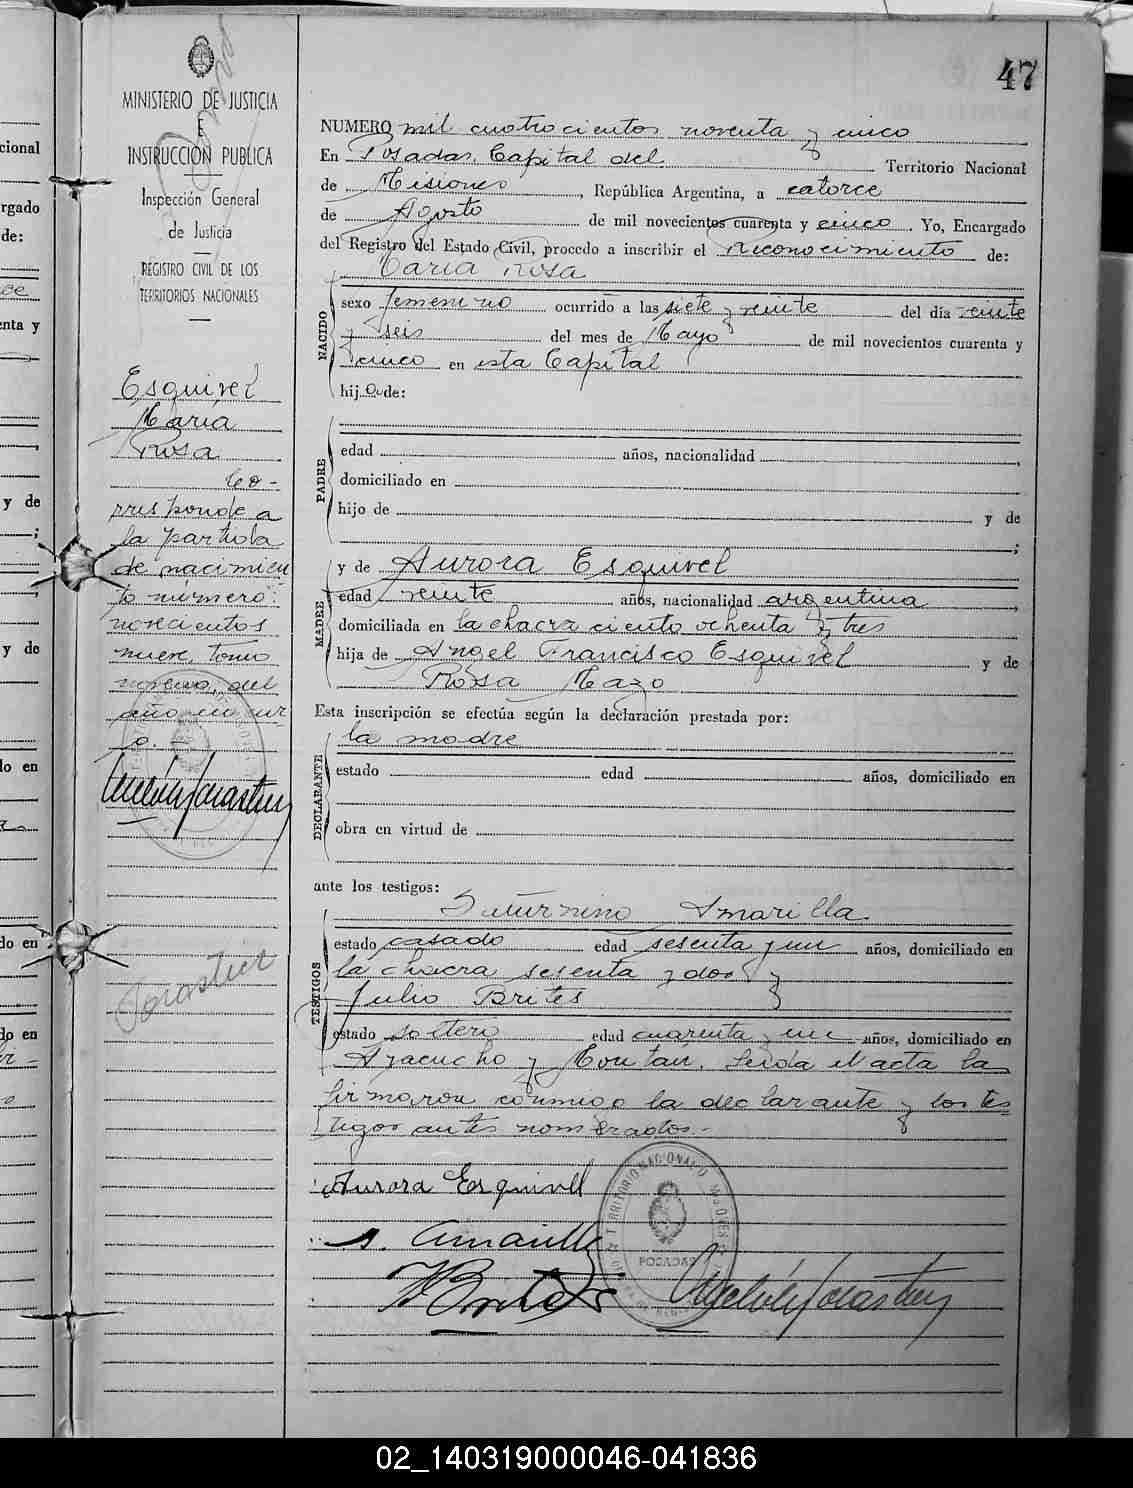 47
MINISTERIO DE JUSTICIA
E
INSTRUCCIÓN PUBLICA
Inspección General
de Justicia
REGISTRO CIVIL DE LOS
TERRITORIOS NACIONALES
Esquivel
María
Rosa
Co-
rresponde a
la partida
de nacimien
to número:
novecientos
nueve, tomo
noveno, del
año en cur
so.
NUMERO mil cuatrocientos noventa y cinco
En Posadas, Capital del Territorio Nacional
de Misiones, República Argentina, a catorce
de Agosto de mil novecientos cuarenta y cinco. Yo, Encargado
del Registro del Estado Civil, procedo a inscribir el Reconocimiento de:
María Rosa
NACIDO
sexo femenino ocurrido a las siete y veinte del día veinte
y seis del mes de Mayo de mil novecientos cuarenta y
cinco en esta Capital
hija de:
PADRE
edad años, nacionalidad
domiciliado en
hijo de y de
;
MADRE
y de Aurora Esquivel
edad veinte años, nacionalidad argentina
domiciliada en la chacra ciento ochenta y tres
hija de Angel Francisco Esquivel y de
Rosa Mazo
Esta inscripción se efectúa según la declaración prestada por:
DECLARANTE
la madre
estado edad años, domiciliado en
obra en virtud de
ante los testigos:
TESTIGOS
Saturnino Amarilla
estado casado edad sesenta y un años, domiciliado en
la chacra sesenta y dos y
Julio Brites
estado soltero edad cuarenta y un años, domiciliado en
Ayacucho y Leida el acta la
firmaron conmigo la declarante y los tes
tigos antes nombrados.-
Aurora Esquivel
S. Amarilla
J Brites
POSADAS
cional
rgado
de:
enta y
y de
;
y de
do en
do en
do en
02_140319000046-041836